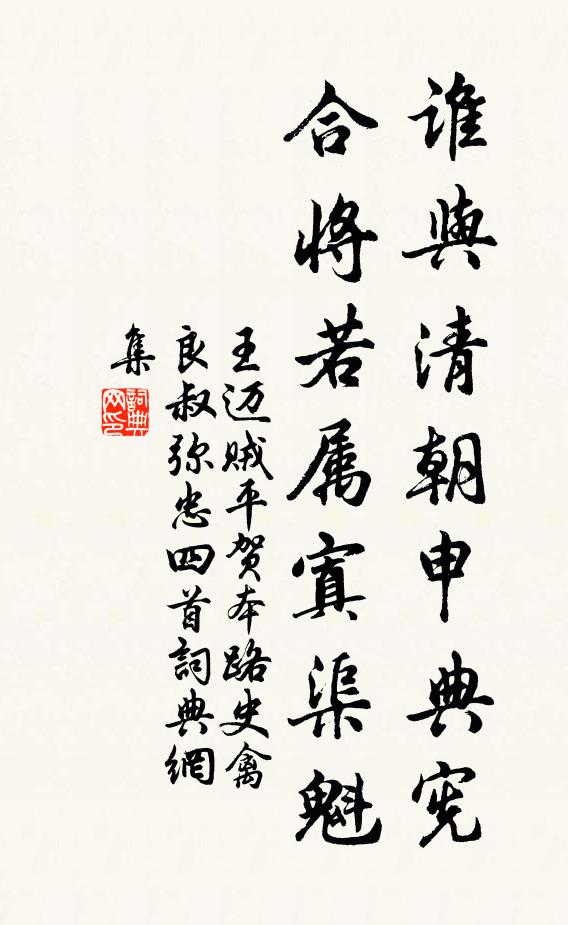 誰與清朝申典宪
合將若属寘渠魁
王迈贼平贺本路史禽
良叔弥忠四首詞典網
集
詞典网印